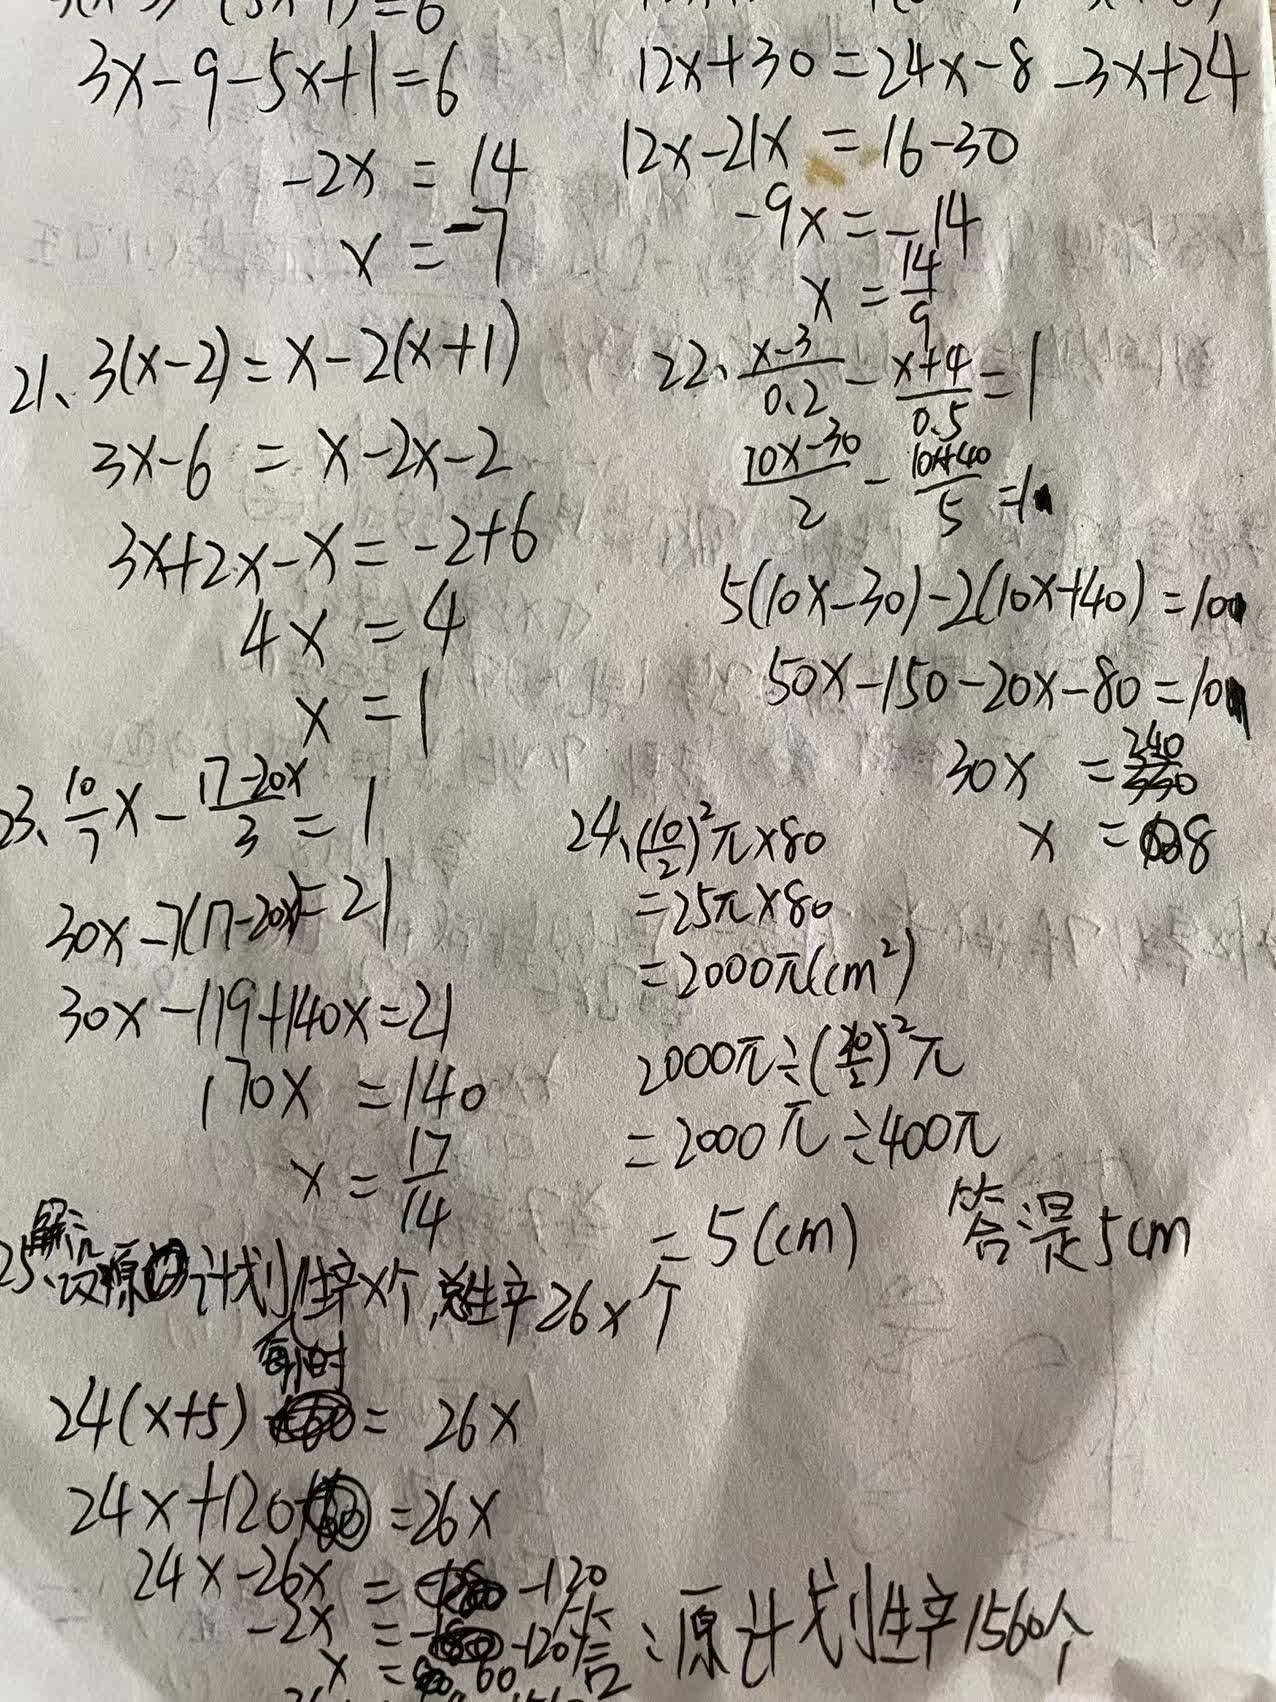 3x-9-5x+1=6
-2x=14
x=-7
12x+30=24x-8-3x+24
12x-21x=16-30
-9x=-14
x=14/9
21、3(x-2)=x-2(x+1)
3x-6=x-2x-2
3x+2x-x=-2+6
4x=4
x=1
22、(x-3)/0.2-(x+4)/0.5=1
(10x-30)/2-(10x+40)/5=1
5(10x-30)-2(10x+40)=10
50x-150-20x-80=10
30x=240
x=8
23、10/7x-(17-20x)/3=1
30x-7(17-20x)=21
30x-119+140x=21
170x=140
x=17/14
24、(10/2)²π×80
=25π×80
=2000π(cm²)
2000π÷(40/2)²π
=2000π÷400π
=5(cm) 答:是5cm
25、解:设原计划每小时生产x个,总生产26x个
24(x+5)=26x
24x+120=26x
24x-26x=-120
-2x=-120
x=60
答:原计划生产1560个